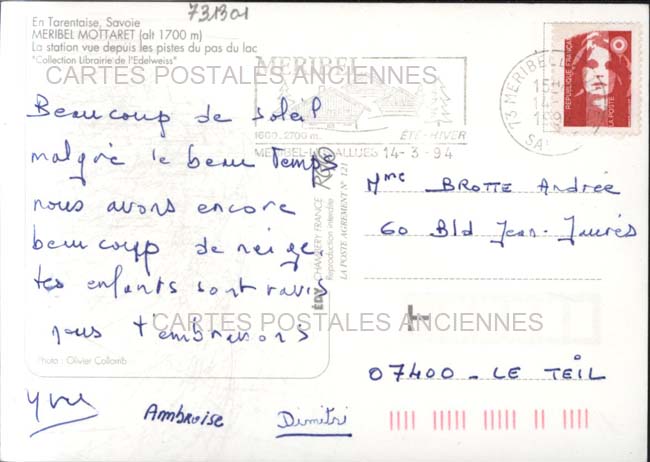 731301
En Tarentaise, Savoie
MERIBEL MOTTARET (alt 1700 m)
La station vue depuis les pistes du pas du lac
"Collection Librairie de l'Edelweiss"
CARTES POSTALES ANCIENNES
MERIBEL
1600-2700 m.
ETE-HIVER
MERIBEL-LES ALLUES 14-3-94
73 MERIBEL
15H
14-
19
SA
REPUBLIQUE FRANÇAISE
LA POSTE
Beaucoup de soleil
malgré le beau temps
nous avons encore
beaucoup de neige
tes enfants sont ravis
nous t'embrassons
Yves
Ambroise
Dimitri
Photo : Olivier Collomb
EDY CHAMBERY FRANCE
Reproduction interdite
LA POSTE AGREMENT N° 121
Mme BROTTE Andrée
60 Bld Jean-Jaurés
CARTES POSTALES ANCIENNES
07400 - LE TEIL